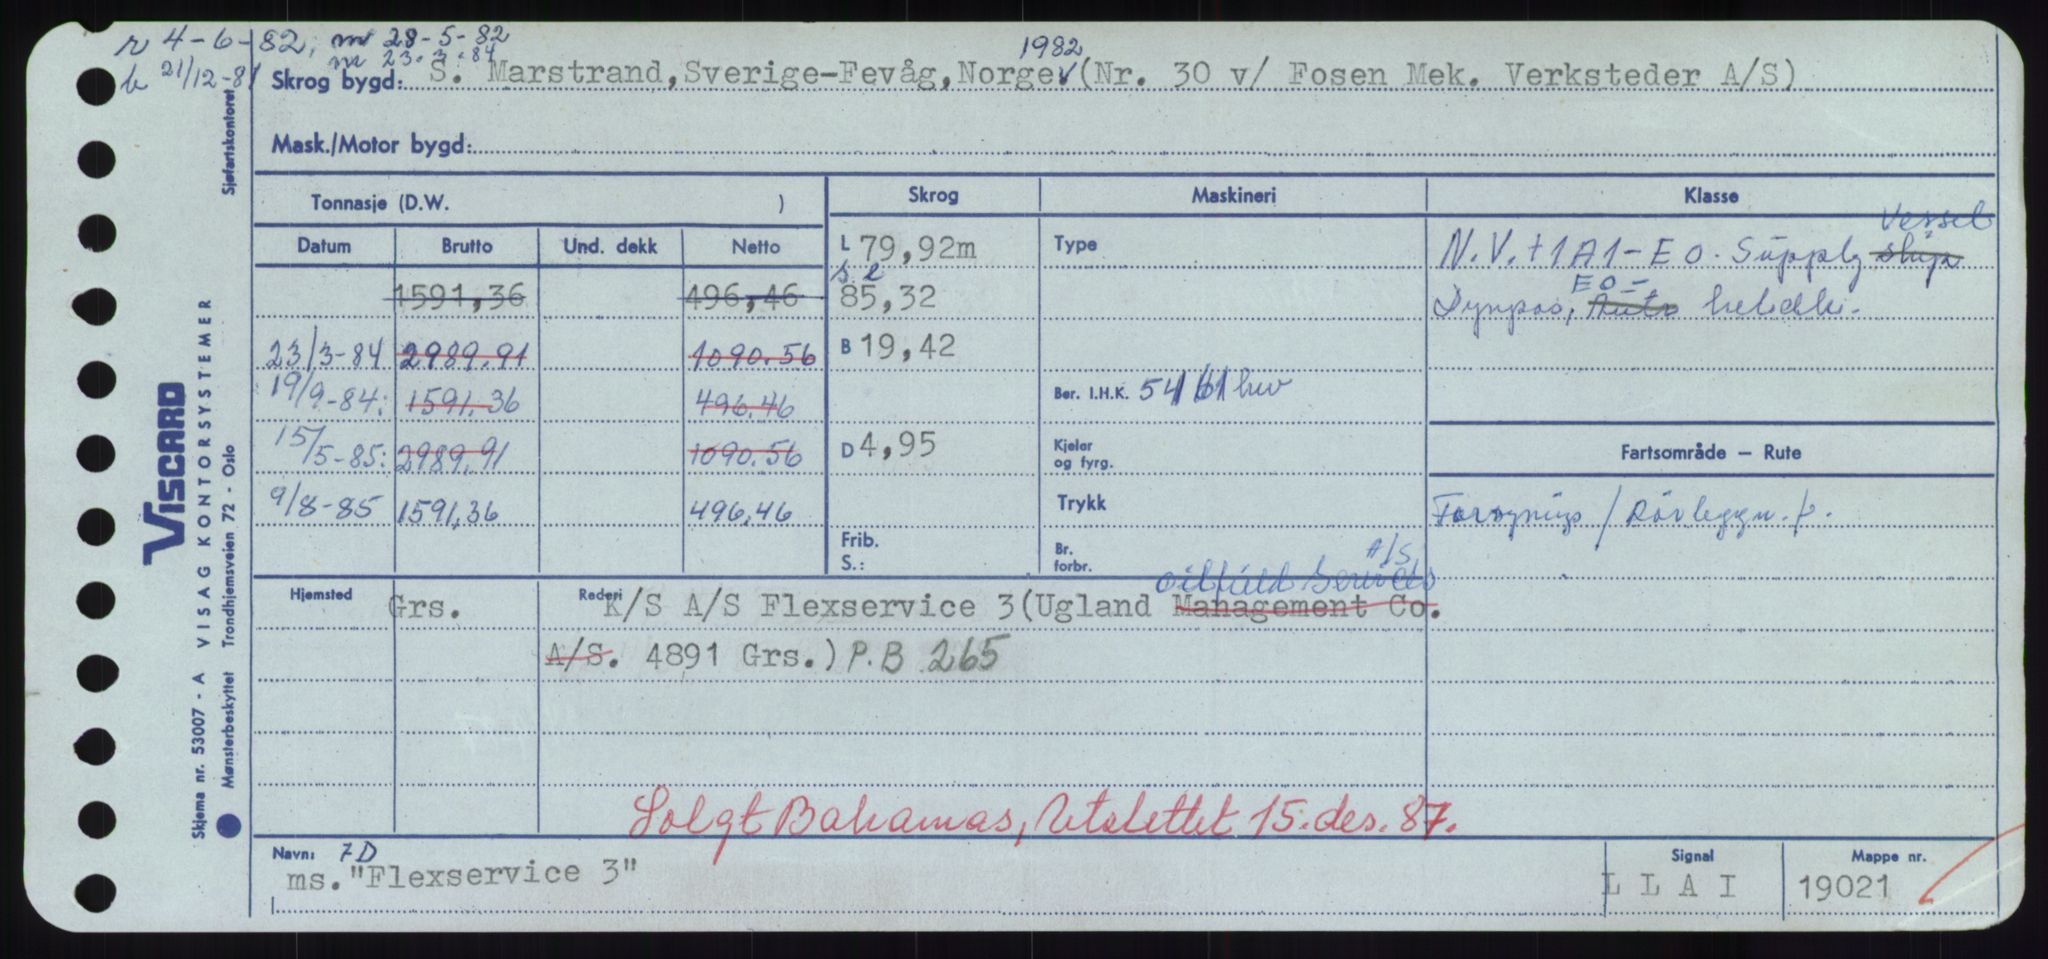 r 4-6-82, m 28-5-82
m 23.3.84
b 21/12-81
1982
Skrog bygd: S. Marstrand, Sverige-Fevåg, Norge (Nr. 30 v/ Fosen Mek. Verksteder A/S)
Mask./Motor bygd:
Tonnasje (D.W. )
Skrog
Maskineri
Klasse
Datum Brutto Und. dekk Netto
L 79,92m
Type
Vessel
N.V. +1A1-E0. Supply ship
1591,36 496,46
S l
85,32
E0-
Dynpos, Auto heledk.
23/3-84 2989.91 1090.56
B 19,42
19/9-84: 1591.36 496.46
Ber. I.H.K. 5461 hw
15/5-85: 2989,91 1090.56
D 4,95
Kjeler og fyrg.
Fartsområde - Rute
9/8-85 1591,36 496,46
Trykk
Forsynings / Rörleggn.f.
Frib.
S.:
Br. forbr.
A/S
Oilfield Services
Hjemsted Grs.
Rederi K/S A/S Flexservice 3(Ugland Management Co.
A/S. 4891 Grs.) P.B 265
Solgt Bahamas, Utslettet 15. des. 87.
Navn: 7D
ms. "Flexservice 3"
Signal
L L A I
Mappe nr.
19021
VISCARD
VISAG KONTORSYSTEMER
Skjema nr. 53007 - A
Mønsterbeskyttet Trondhjemsveien 72 - Oslo
Sjøfartskontoret